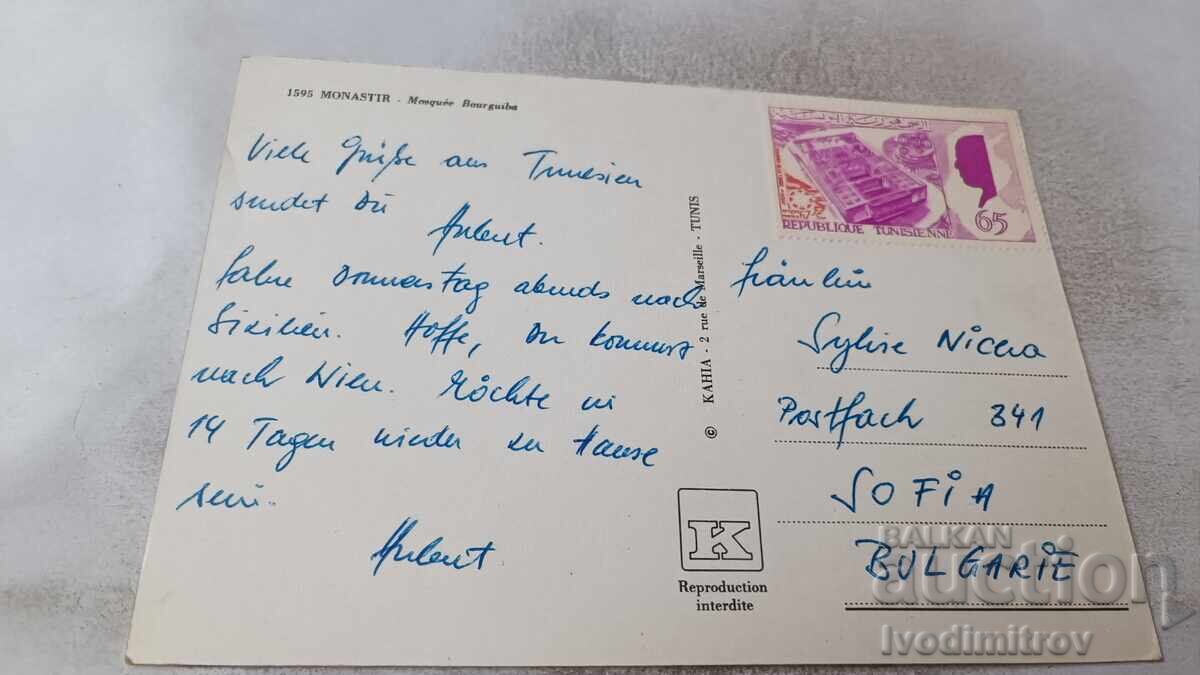 1595 MONASTIR - Mosquée Bourguiba
Viele Grüße aus Tunesien
sendet Dir
Hubert.
fahre Donnerstag abends nach
Sizilien. Hoffe, Du kommst
nach Wien. Möchte in
14 Tagen wieder zu Hause
sein.
Hubert
© KAHIA - 2 rue de Marseille - TUNIS
REPUBLIQUE TUNISIENNE
65
Fräulein
Sylvie
Postfach 341
SOFIA
BULGARIE
K
Reproduction
interdite
BALKAN
auction
Ivodimitrov